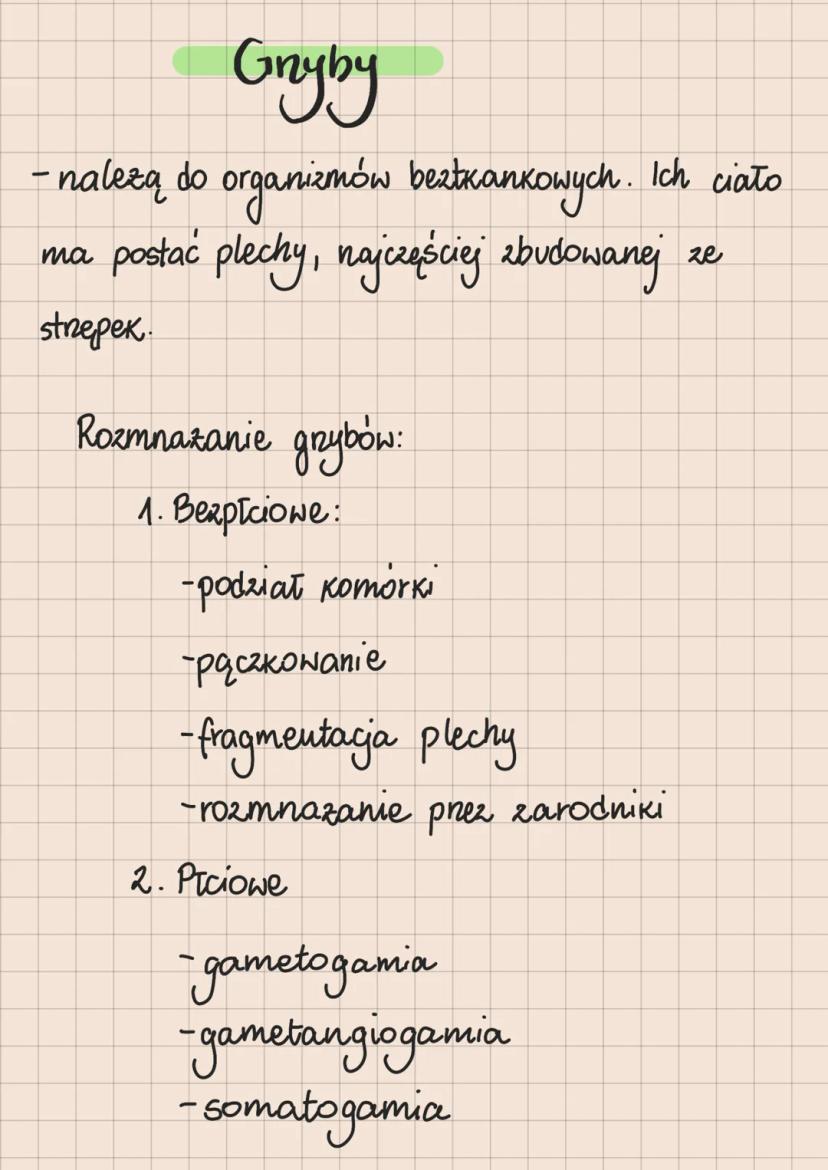 Grzyby
- należą do organizmów beztkankowych. Ich ciało
ma postać plechy, najczęściej zbudowanej ze
strzępek.
Rozmnażanie grzybów:
1. Bezpłciowe:
-podział komórki
-pączkowanie
-fragmentacja plechy
-rozmnażanie przez zarodniki
2. Płciowe
-gametogamia
-gametangiogamia
-somatogamia